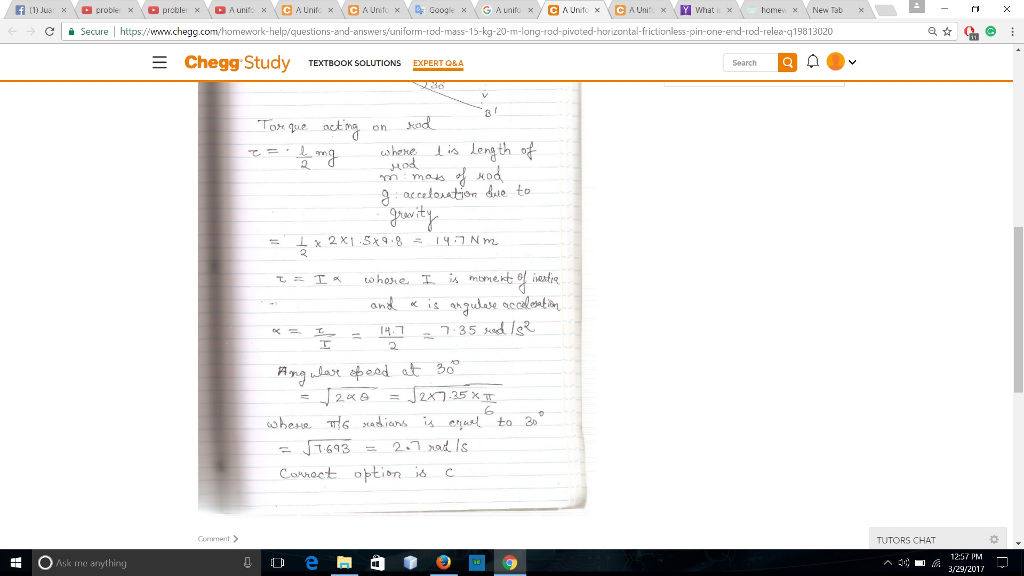 (1) Juar
probler
probler
A unifo
A Unifo
A Unifo
Google
A unifo
A Unifo
A Unifo
What i
homew
New Tab
Secure | https://www.chegg.com/homework-help/questions-and-answers/uniform-rod-mass-15-kg-20-m-long-rod-pivoted-horizontal-frictionless-pin-one-end-rod-relea-q19813020
Chegg Study TEXTBOOK SOLUTIONS EXPERT Q&A Search
30
B'
Torque acting on rod
τ = l/2 mg where l is length of
rod
m: mass of rod
g: acceleration due to
gravity
= 1/2 × 2×1.5×9.8 = 14.7 Nm
τ = I α where I is moment of inertia
and α is angular acceleration
α = τ/I = 14.7/2 = 7.35 rad/s²
Angular speed at 30°
= √2αθ = √2×7.35×π/6
where π/6 radians is equal to 30°
= √7.693 = 2.7 rad/s
Correct option is C
Comment >
TUTORS CHAT
Ask me anything
12:57 PM
3/29/2017